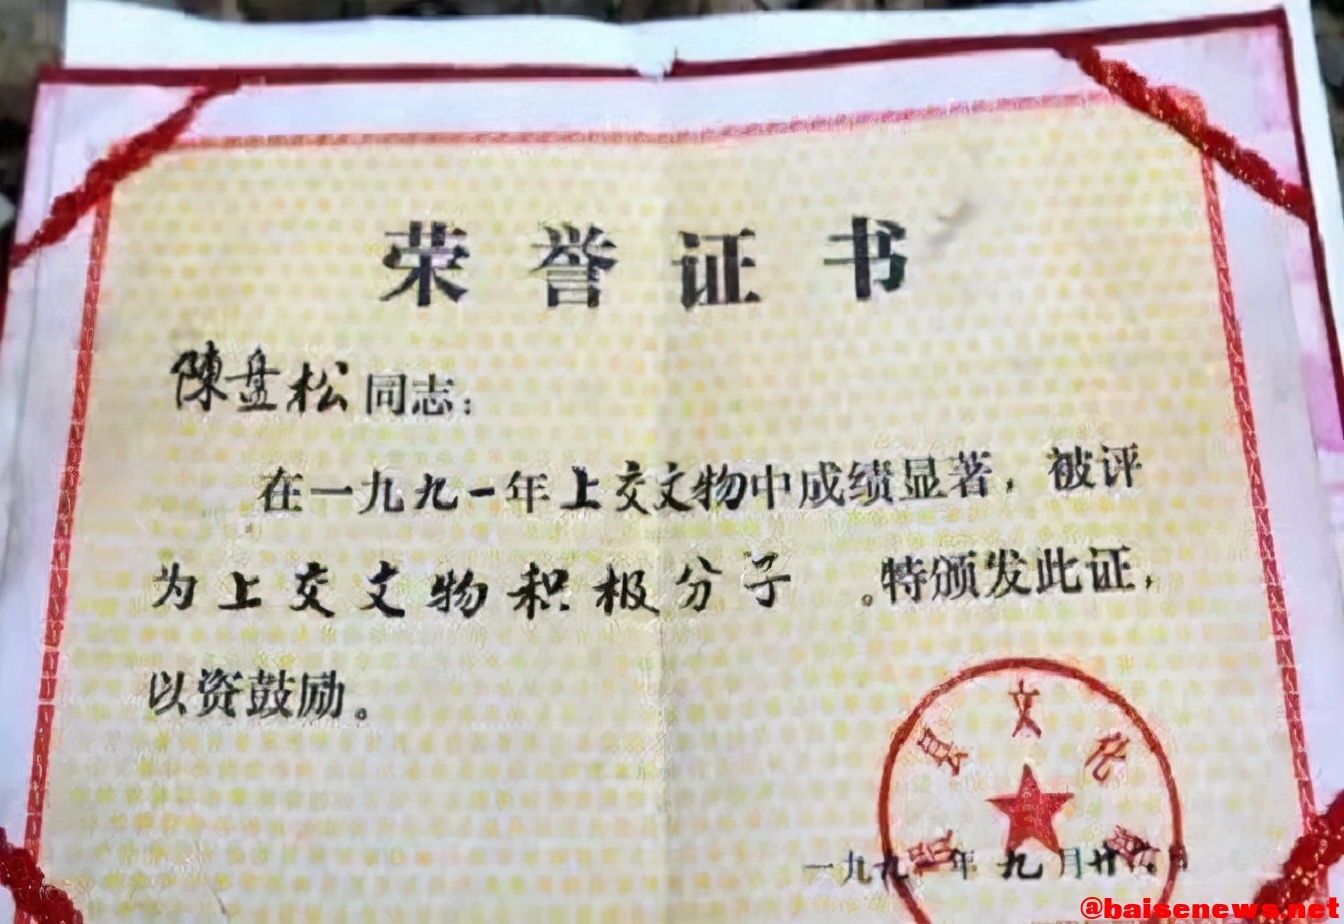 荣誉证书
陳盘松同志：
在一九九一年上交文物中成绩显著，被评
为上交文物积极分子。特颁发此证，
以资鼓励。
县文化
一九九一年九月廿 日
@baisenews.net